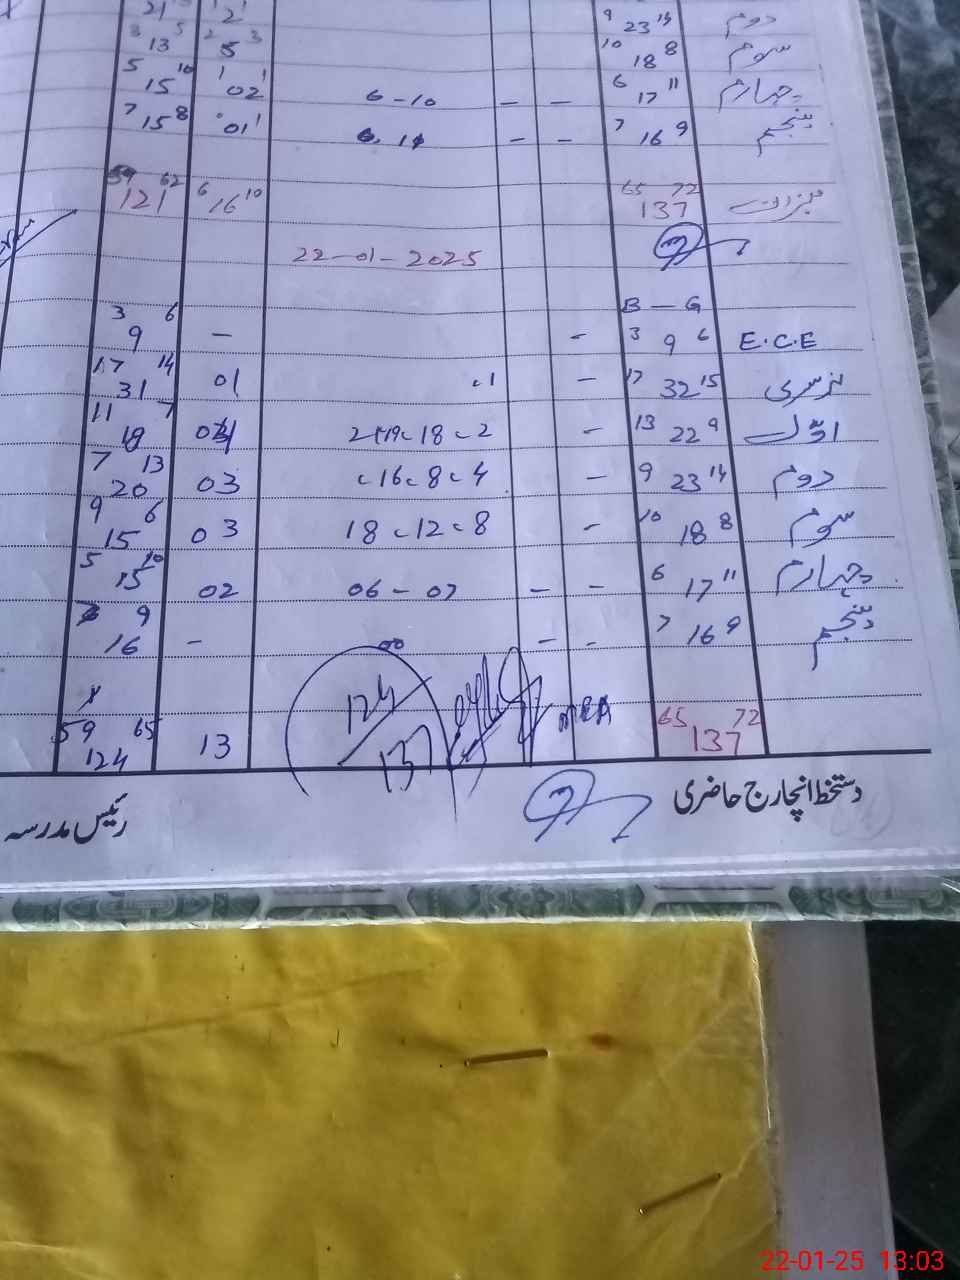 21 2 9 23 14 دوم
3 13 5 2 5 3 10 18 8 سوم
5 15 10 1 02 1 6 - 10 - - 6 17 11 چہارم
7 15 8 01 1 - - 7 16 9 پنجم
59 121 62 6 16 10 65 137 72 میزان
22-01-2025
B - G
3 9 6 - - 3 9 6 E.C.E
17 31 14 01 1 - 17 32 15 نرسری
11 18 7 04 21، 19، 18، 2 - 13 22 9 اوّل
7 20 13 03 16، 8، 4 - 9 23 14 دوم
9 15 6 03 18، 12، 8 - 10 18 8 سوم
5 15 10 02 06 - 07 - - 6 17 11 چہارم
7 16 9 - 00 - - 7 16 9 پنجم
59 124 65 13 124/137 MEA 65 137 72
دستخط انچارج حاضری رئیس مدرسہ
22-01-25 13:03